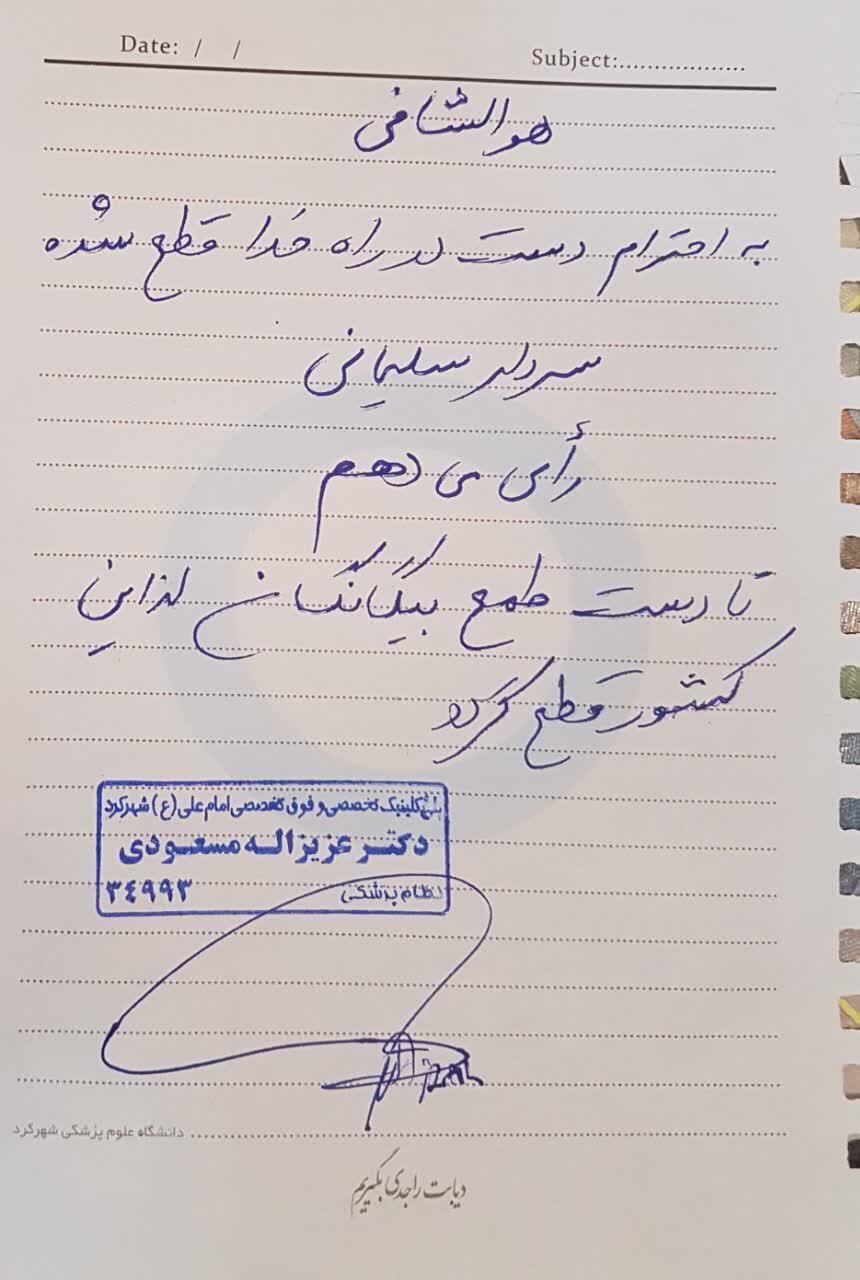 Date: / /
Subject:..................
هوالشافی
به احترام دست در راه خدا قطع شده
سردار سلیمانی
رأی می دهم
تا دست طمع بیگانگان از این
کشور قطع گردد
کلینیک تخصصی و فوق تخصصی امام علی (ع) شهرکرد
دکتر عزیزاله مسعودی
نظام پزشکی ۳٤۹۹۳
دانشگاه علوم پزشکی شهرکرد
دیابت را جدی بگیریم